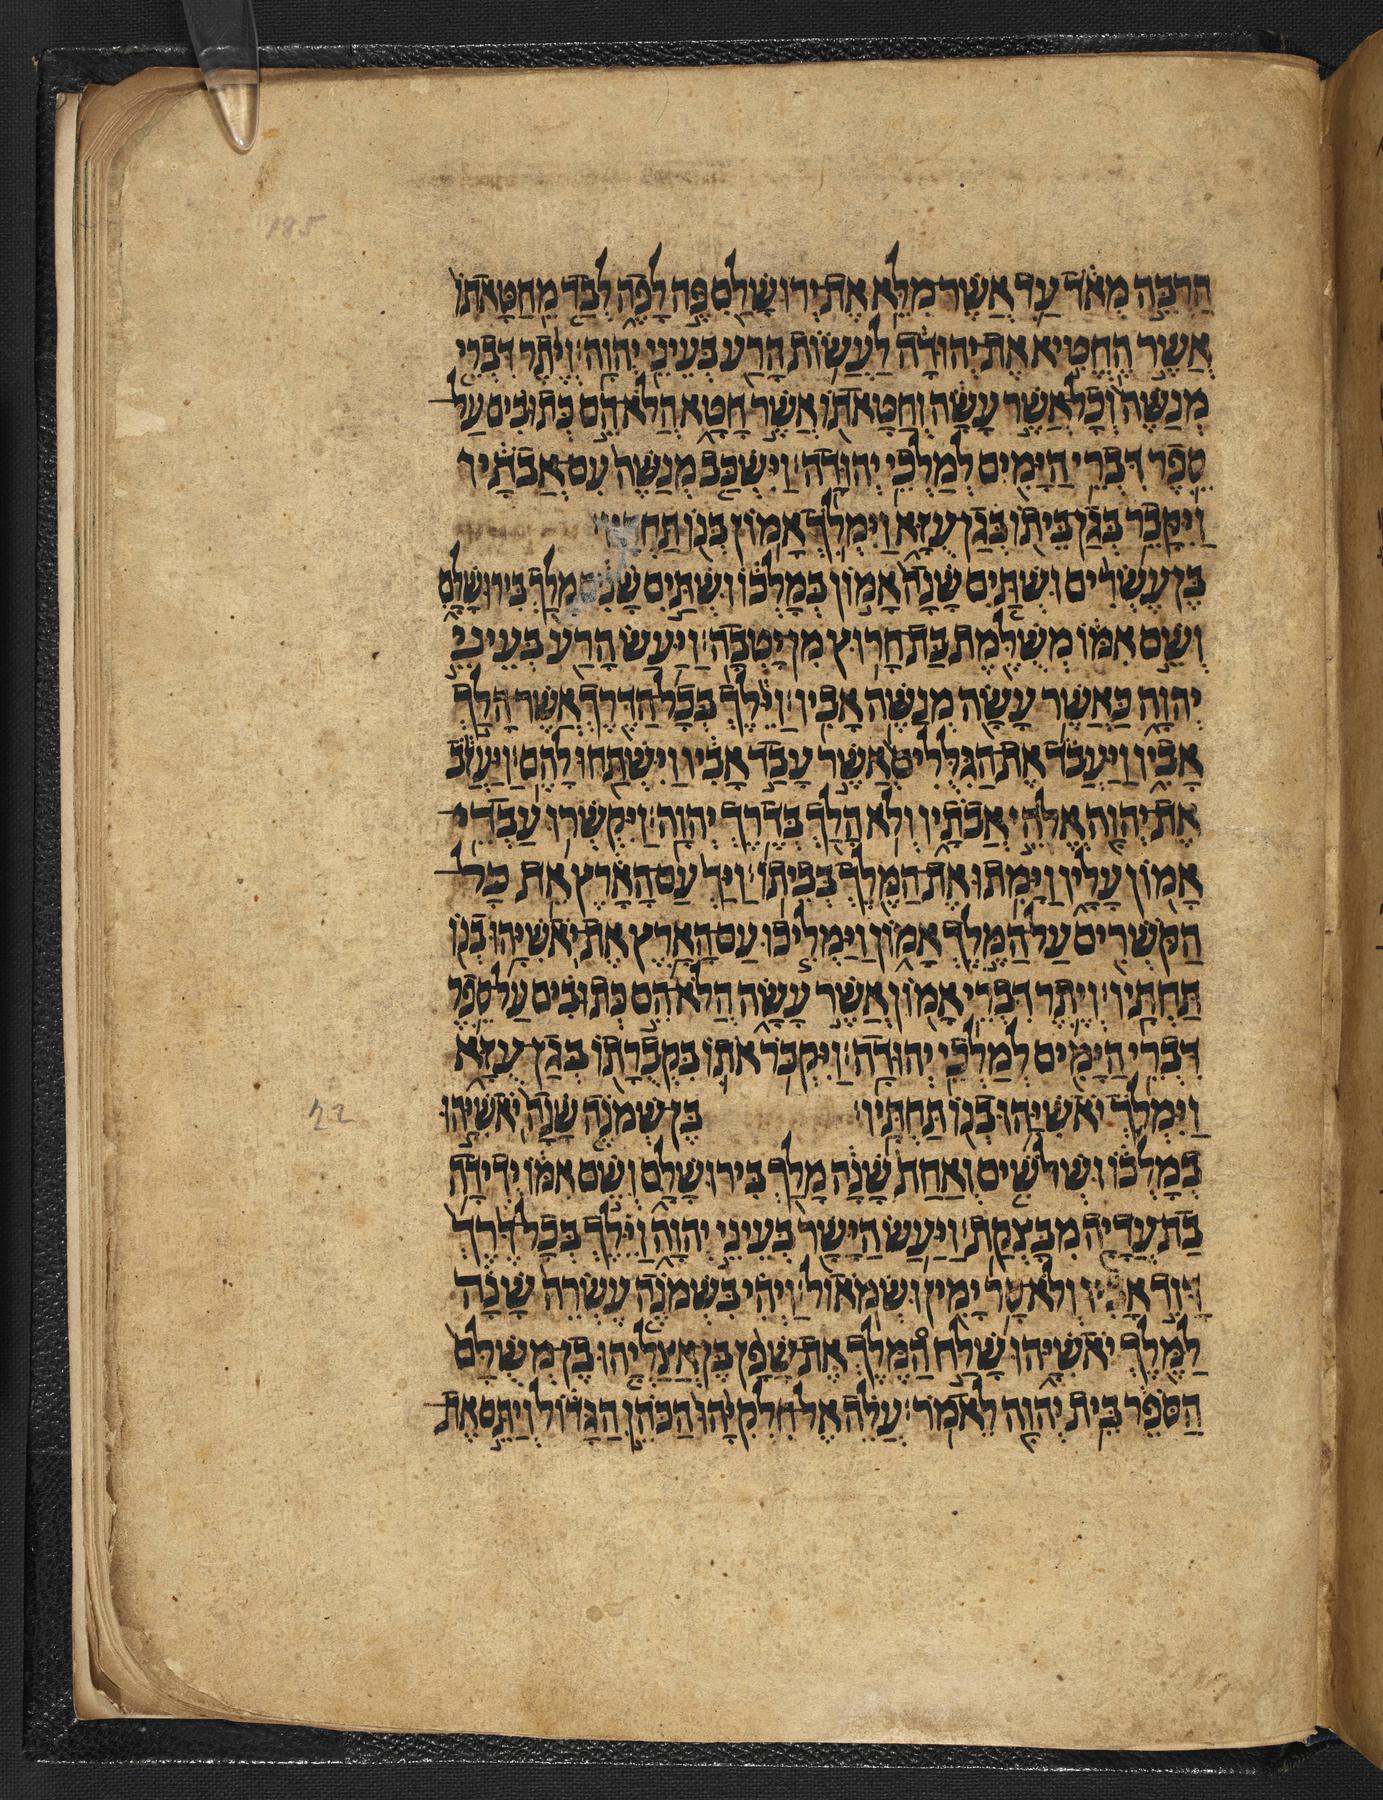 185
הַרְבֵּה מְאֹד עַד אֲשֶׁר מִלֵּא אֶת יְרוּשָׁלִַם פֶּה לָפֶה לְבַד מֵחַטָּאתוֹ
אֲשֶׁר הֶחֱטִיא אֶת יְהוּדָה לַעֲשׂוֹת הָרַע בְּעֵינֵי יְהוָה׃ וְיֶתֶר דִּבְרֵי
מְנַשֶּׁה וְכָל אֲשֶׁר עָשָׂה וְחַטָּאתוֹ אֲשֶׁר חָטָא הֲלֹא הֵם כְּתוּבִים עַל
סֵפֶר דִּבְרֵי הַיָּמִים לְמַלְכֵי יְהוּדָה׃ וַיִּשְׁכַּב מְנַשֶּׁה עִם אֲבֹתָיו
וַיִּקָּבֵר בְּגַן בֵּיתוֹ בְּגַן עֻזָּא וַיִּמְלֹךְ אָמוֹן בְּנוֹ תַּחְתָּיו׃
בֶּן עֶשְׂרִים וּשְׁתַּיִם שָׁנָה אָמוֹן בְּמָלְכוֹ וּשְׁתַּיִם שָׁנִים מָלַךְ בִּירוּשָׁלִָם
וְשֵׁם אִמּוֹ מְשֻׁלֶּמֶת בַּת חָרוּץ מִן יָטְבָה׃ וַיַּעַשׂ הָרַע בְּעֵינֵי
יְהוָה כַּאֲשֶׁר עָשָׂה מְנַשֶּׁה אָבִיו׃ וַיֵּלֶךְ בְּכָל הַדֶּרֶךְ אֲשֶׁר הָלַךְ
אָבִיו וַיַּעֲבֹד אֶת הַגִּלֻּלִים אֲשֶׁר עָבַד אָבִיו וַיִּשְׁתַּחוּ לָהֶם׃ וַיַּעֲזֹב
אֶת יְהוָה אֱלֹהֵי אֲבֹתָיו וְלֹא הָלַךְ בְּדֶרֶךְ יְהוָה׃ וַיִּקְשְׁרוּ עַבְדֵי
אָמוֹן עָלָיו וַיָּמִתוּ אֶת הַמֶּלֶךְ בְּבֵיתוֹ׃ וַיַּךְ עַם הָאָרֶץ אֵת כָּל
הַקֹּשְׁרִים עַל הַמֶּלֶךְ אָמוֹן וַיַּמְלִיכוּ עַם הָאָרֶץ אֶת יֹאשִׁיָּהוּ בְנוֹ
תַּחְתָּיו׃ וְיֶתֶר דִּבְרֵי אָמוֹן אֲשֶׁר עָשָׂה הֲלֹא הֵם כְּתוּבִים עַל סֵפֶר
דִּבְרֵי הַיָּמִים לְמַלְכֵי יְהוּדָה׃ וַיִּקְבֹּר אֹתוֹ בִּקְבֻרָתוֹ בְּגַן עֻזָּא
וַיִּמְלֹךְ יֹאשִׁיָּהוּ בְנוֹ תַּחְתָּיו׃ בֶּן שְׁמֹנֶה שָׁנָה יֹאשִׁיָּהוּ
22
בְמָלְכוֹ וּשְׁלֹשִׁים וְאַחַת שָׁנָה מָלַךְ בִּירוּשָׁלִָם וְשֵׁם אִמּוֹ יְדִידָה
בַת עֲדָיָה מִבָּצְקַת׃ וַיַּעַשׂ הַיָּשָׁר בְּעֵינֵי יְהוָה וַיֵּלֶךְ בְּכָל דֶּרֶךְ
דָּוִד אָבִיו וְלֹא סָר יָמִין וּשְׂמֹאול׃ וַיְהִי בִּשְׁמֹנֶה עֶשְׂרֵה שָׁנָה
לַמֶּלֶךְ יֹאשִׁיָּהוּ שָׁלַח הַמֶּלֶךְ אֶת שָׁפָן בֶּן אֲצַלְיָהוּ בֶן מְשֻׁלָּם
הַסֹּפֵר בֵּית יְהוָה לֵאמֹר׃ עֲלֵה אֶל חִלְקִיָּהוּ הַכֹּהֵן הַגָּדוֹל וְיַתֵּם אֶת